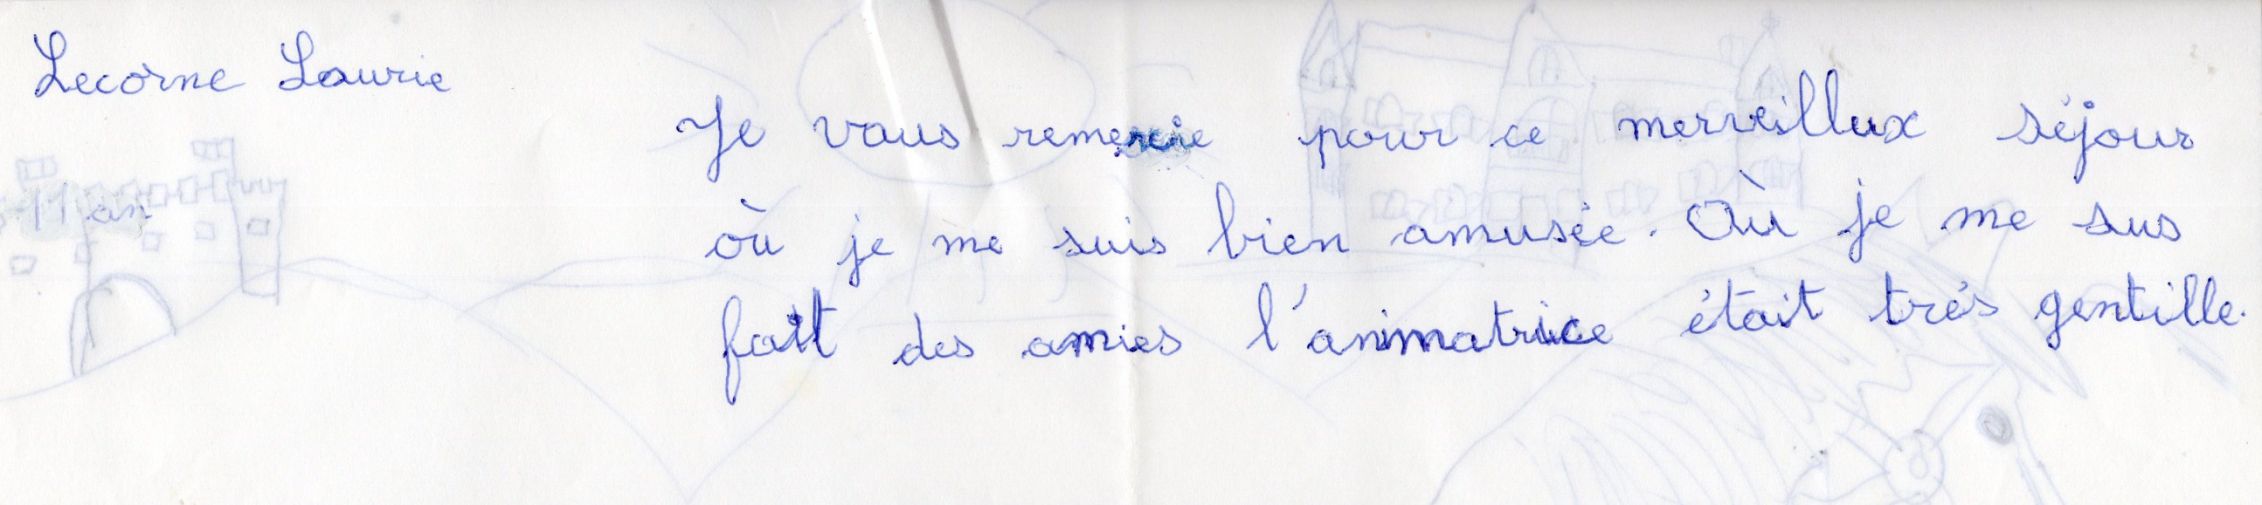 Lecorne Laurie
11 an
Je vous remercie pour ce merveillux séjour
où je me suis bien amusée. Où je me sus
fait des amies l'animatrice était trés gentille.